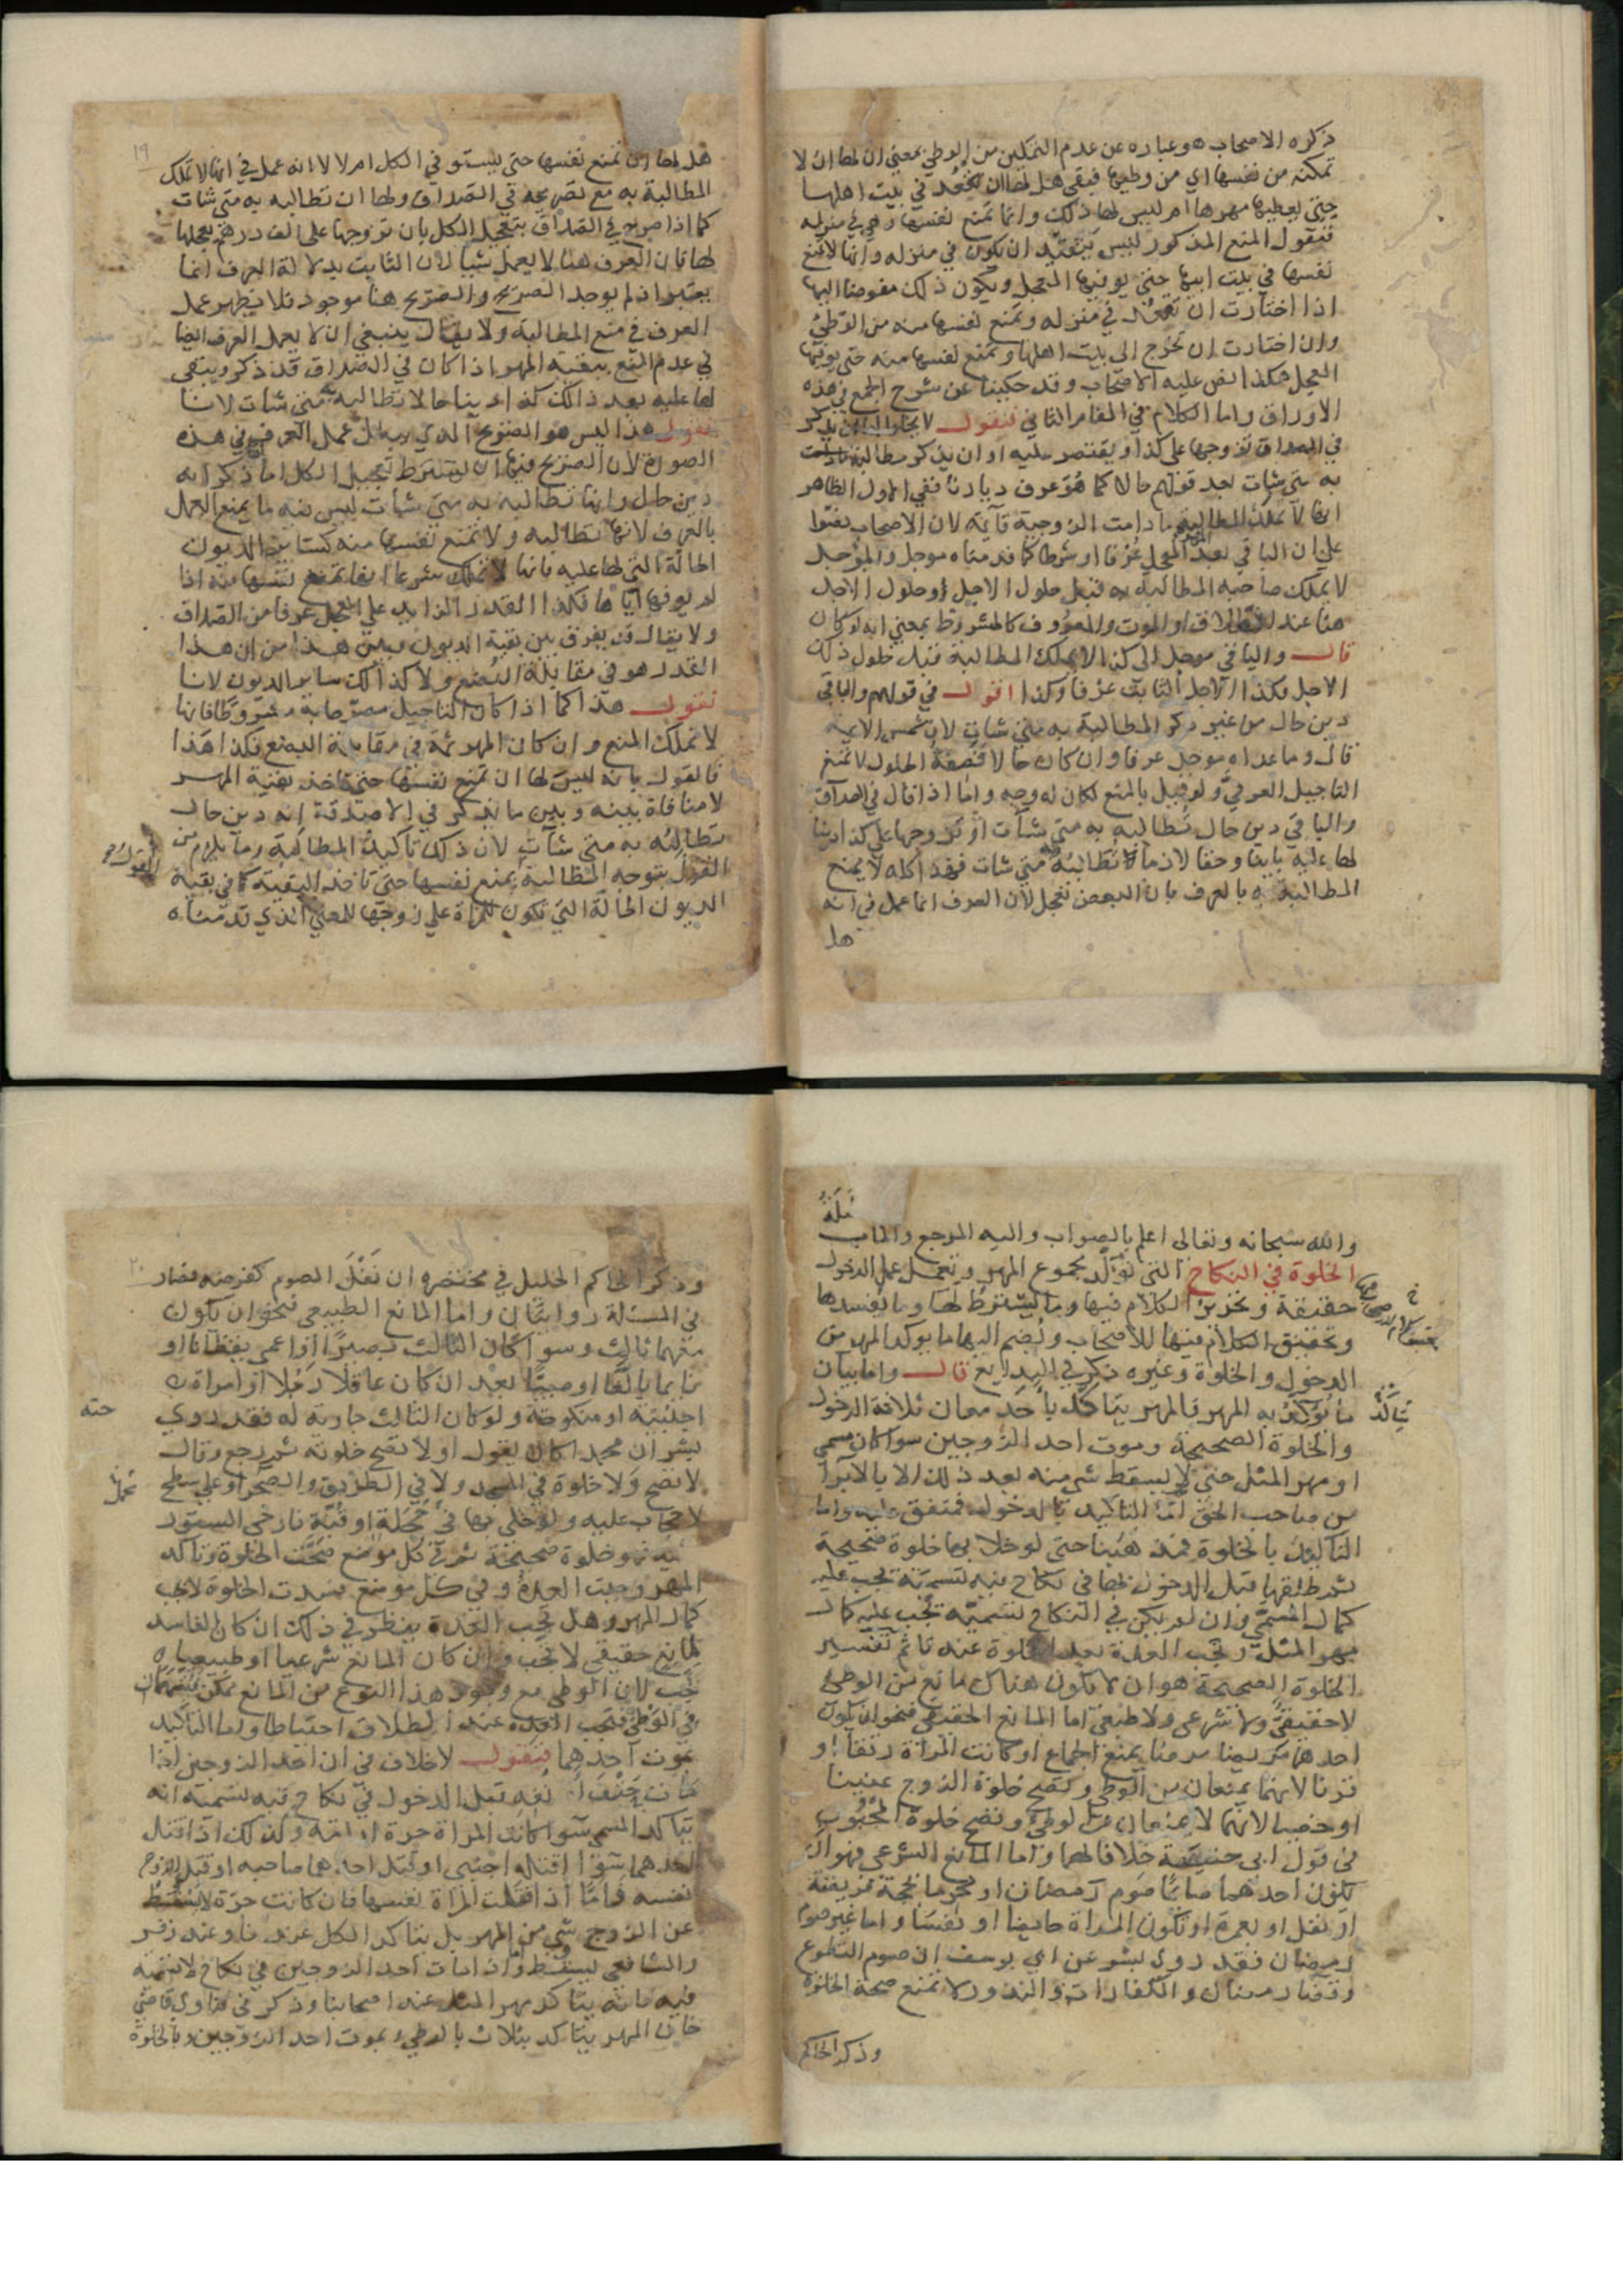 ذكره الاصحاب هو عباره عن عدم التمكين من الوطئ بمعني ان لها ان لا
تمكنه من نفسها اي من وطيها فبقي هل لها ان تقعد في بيت اهلها
حتي يعطيها مهرها ام ليس لها ذلك وانما تمنع نفسها وهي في منزله
فنقول المنع المذكور ليس بتقييد ان يكون في منزله وانها لا تمنع
نفسها في بيت ابيها حتي يوفيها المعجل ويكون ذلك مفوضا اليها
اذا اختارت ان تقعد في منزله وتمنع نفسها منه من الوطئ
وان اختارت ان تخرج الى بيت اهلها وتمنع نفسها منه حتى يوفيها
المعجل هكذا نص عليه الاصحاب وقد حكينا عن شرح المجمع في هذه
الاوراق واما الكلام في المقام الثاني فنقول لا يخلوا اما ان يذكر
في الصداق تزوجها على كذا ويقتصر عليه او ان يذكر مطالبته
به متي شات بعد قولهم حالا كما هو عرف ديارنا ففي الاول الظاهر
انها لا تملك المطالبة ما دامت الزوجية قآئمة لان الاصحاب نصوا
علي ان الباقي بعد المعجل عرفا او شرطا كما قدمناه موجل والمؤجل
لا يملك صاحبه المطالبة به قبل حلول الاجل وحلول الاجل
هنا عند الطلاق او الموت والمعروف كالمشروط بمعني انه لو كان
قال والباقي موجل الى كذا لا يملك المطالبة قبل حلول ذلك
الاجل فكذا الاجل الثابت عرفا وكذا اقول في قولهم والباقي
دين حال من غير ذكر المطالبة به متي شات لان شمس الايمه
قال وما عداه موجل عرفا وان كان حالا فصفة الحلول لا تمنع
التاجيل العرفي ولو قيل بالمنع لكان له وجه واما اذا قال في الصداق
والباقي دين حال تطالبه به متي شآت او تزوجها علي كذا دينا
لها عليه باينا وحقا لازما تطالبه به متي شات فهذا كله لا يمنع
المطالبة به بالعرف بان البعض معجل لان العرف انما عمل في انه
هل
١٩
هل لها ان تمنع نفسها حتى يستوفي الكل ام لا لا انه عمل في انها لا تملك
المطالبة به مع تصريحه في الصداق ولها ان تطالبه به متي شات
كما اذا صرح في الصداق بتعجيل الكل بان تزوجها على الف درهم يعجلها
لها فان العرف هنا لا يعمل شيا لان الثابت بدلالة العرف انما
يعتبر اذا لم يوجد الصريح والصريح هنا موجود فلا يظهر عمل
العرف في منع المطالبة ولا يقال ينبغي ان لا يعمل العرف ايضا
في عدم المنع ببقية المهر اذا كان في الصداق قد ذكر ويبقى
لها عليه بعد ذالك كذا دينا حالا تطالبه به متي شات لانا
نقول هذا ليس هو الصريح الذي يبطل عمل العرف في هذه
الصورة لان الصريح فيها ان يشترط تعجيل الكل اما ذكر انه
دين حال وانها تطالبه به متي شات ليس فيه ما يمنع العمل
بالعرف لانها تطالبه ولا تمنع نفسها منه كسآير الديون
الحالة التي لها عليه فانها لا تملك شرعا انها تمنع نفسها منه اذا
لم يوفها اياها فكذا القدر الزايد علي المعجل عرفا من الصداق
ولا يقال قد يفرق بين بقية الديون وبين هذا من ان هذا
القدر هو في مقابلة البضع ولا كذالك ساير الديون لانا
نقول هذا كما اذا كان التاجيل مصرحا به مشروطا فانها
لا تملك المنع وان كان المهر ثمة في مقابلة البضع فكذا هذا
فالقول بانه ليس لها ان تمنع نفسها حتى تاخذ بقية المهر
لا منافاة بينه وبين ما يذكر في الاصدقة انه دين حال
تطالبه به متي شآت لان ذلك تاكيد المطالبة وما يلزم من
القول بتوجه المطالبة تمنع نفسها حتى تاخذ البقية كما في بقية
الديون الحالة التي تكون للمراة علي زوجها للمعني الذي قدمناه
والله سبحانه وتعالى اعلم بالصواب واليه المرجع والماب
الخلوة في النكاح التي تؤكد مجموع المهر وتعمل عمل الدخول
حقيقة وتحرير الكلام فيها وما يشترط لها وما يفسدها
وتحقيق الكلام فيها للاصحاب ونضم اليها ما يوكد المهر من
الدخول والخلوة وغيره ذكر في البدايع قال واما بيان
ما يوكد به المهر فالمهر يتاكد باحد معان ثلاثة الدخول
والخلوة الصحيحة وموت احد الزوجين سوا كان مسمى
او مهر المثل حتى لا يسقط شي منه بعد ذلك الا بالابرآ
من صاحب الحق اما التاكيد بالدخول فمتفق عليه واما
التاكيد بالخلوة فمذهبنا حتى لو خلا بها خلوة صحيحة
ثم طلقها قبل الدخول بها في نكاح فيه تسمية يجب عليه
كمال المسمي وان لم يكن في النكاح تسمية يجب عليه كمال
مهر المثل وتجب العدة بعد الخلوة عندنا ثم تفسير
الخلوة الصحيحة هو ان لا يكون هناك مانع من الوطئ
لا حقيقي ولا شرعي ولا طبعي اما المانع الحقيقي فنحو ان يكون
احدهما مريضا مرضا يمنع الجماع او كانت المراة رتقآ او
قرنا لانهما يمنعان من الوطي وتصح خلوة الزوج عنينا
او خصيا لانهما لا يمنعان من الوطئ وتصح خلوة المجبوب
في قول ابي حنيفة خلافا لهما واما المانع الشرعي فهو ان
يكون احدهما صائما صوم رمضان او محرما بحجة فريضة
او نفل او بعمرة او تكون المراة حايضا او نفسا واما غير صوم
رمضان فقد روي بشر عن ابي يوسف ان صوم التطوع
وقضا رمضان والكفارات والنذور لا تمنع صحة الخلوة
وذكر الحاكم
٢٠
وذكر الحاكم الخليل في مختصره ان نفل الصوم كفرضه فصار
في المسئلة روايتان واما المانع الطبيعي فنحو ان يكون
معهما ثالث وسوا كان الثالث بصيرا او اعمى يقظانا او
نايما بالغا او صبيا بعد ان كان عاقلا رجلا او امراة
اجنبية او منكوحة ولو كان الثالث جارية له فقد روي
بشر ان محمدا كان يقول اولا تصح خلوته ثم رجع وقال
لا تصح ولا خلوة في المسجد ولا في الطريق والصحرا وعلي سطح
لا حجاب عليه ولو خلى بها في حجلة او قبة فارخى الستور
عليه فهو خلوة صحيحة ثم في كل موضع صحت الخلوة وتاكد
المهر وجبت العدة وفي كل موضع فسدت الخلوة لا يجب
كمال المهر وهل تجب العدة ينظر في ذلك ان كان الفاسد
لمانع حقيقي لا تجب وان كان المانع شرعيا او طبيعيا
تجب لان الوطي مع وجود هذا النوع من المانع ممكن فيتهمان
في الوطئ فتجب العدة عند الطلاق احتياطا واما التاكيد
بموت احدهما فنقول لا خلاف في ان احد الزوجين اذا
مات حتف انفه قبل الدخول في نكاح فيه تسمية انه
يتاكد المسمي سوا كانت المراة حرة او امة وكذلك اذا قتل
احدهما سوآ قتله اجنبي او قتل احدهما صاحبه او قتل الزوج
نفسه فاما اذا قتلت المراة نفسها فان كانت حرة لا يسقط
عن الزوج شي من المهر بل يتاكد الكل عندنا وعند زفر
والشافعي يسقط واذا مات احد الزوجين في نكاح لا تسمية
فيه فانه يتاكد مهر المثل عند اصحابنا وذكر في فتاوي قاضي
خان المهر يتاكد بثلاث بالوطيء وبموت احد الزوجين وبالخلوة